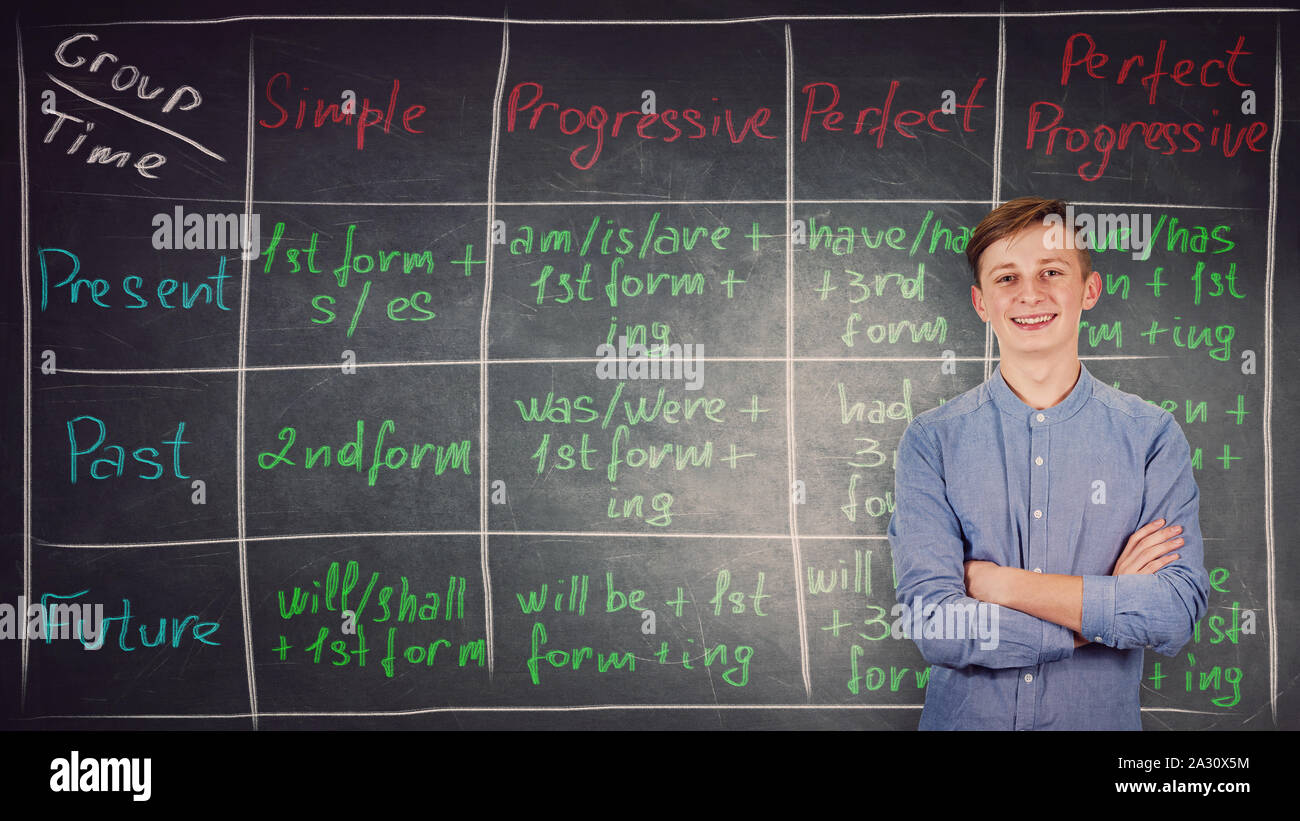 Group
Time
Simple
Progressive
Perfect
Perfect
Progressive
Present
1st form +
s/es
am/is/are +
1st form +
ing
have/has
+3rd
form
/has
+ 1st
+ing
Past
2nd form
was/were +
1st form +
ing
had
+
Future
will/shall
+ 1st form
will be + 1st
form + ing
will
form
+ ing
alamy
Image ID: 2A30X5M
www.alamy.com